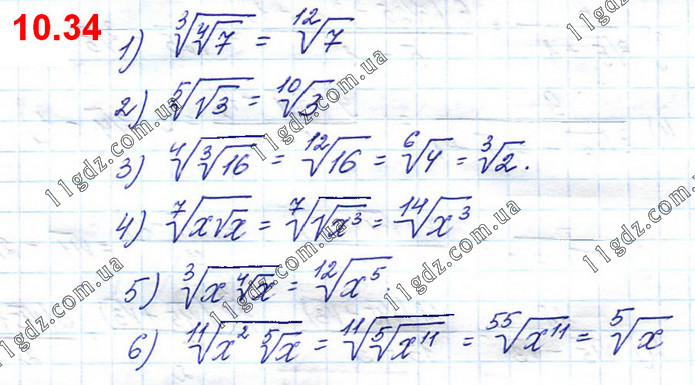 10.34
1) ∛(∜7) = ¹²√7
2) ⁵√(√3) = ¹⁰√3
3) ∜(∛16) = ¹²√16 = ⁶√4 = ∛2.
4) ⁷√(x√x) = ⁷√(√x³) = ¹⁴√x³
5) ∛(x ∜x) = ¹²√x⁵.
6) ¹¹√(x² ⁵√x) = ¹¹√(⁵√x¹¹) = ⁵⁵√x¹¹ = ⁵√x
11gdz.com.ua
11gdz.com.ua
11gdz.com.ua
11gdz.com.ua
11gdz.com.ua
11gdz.com.ua